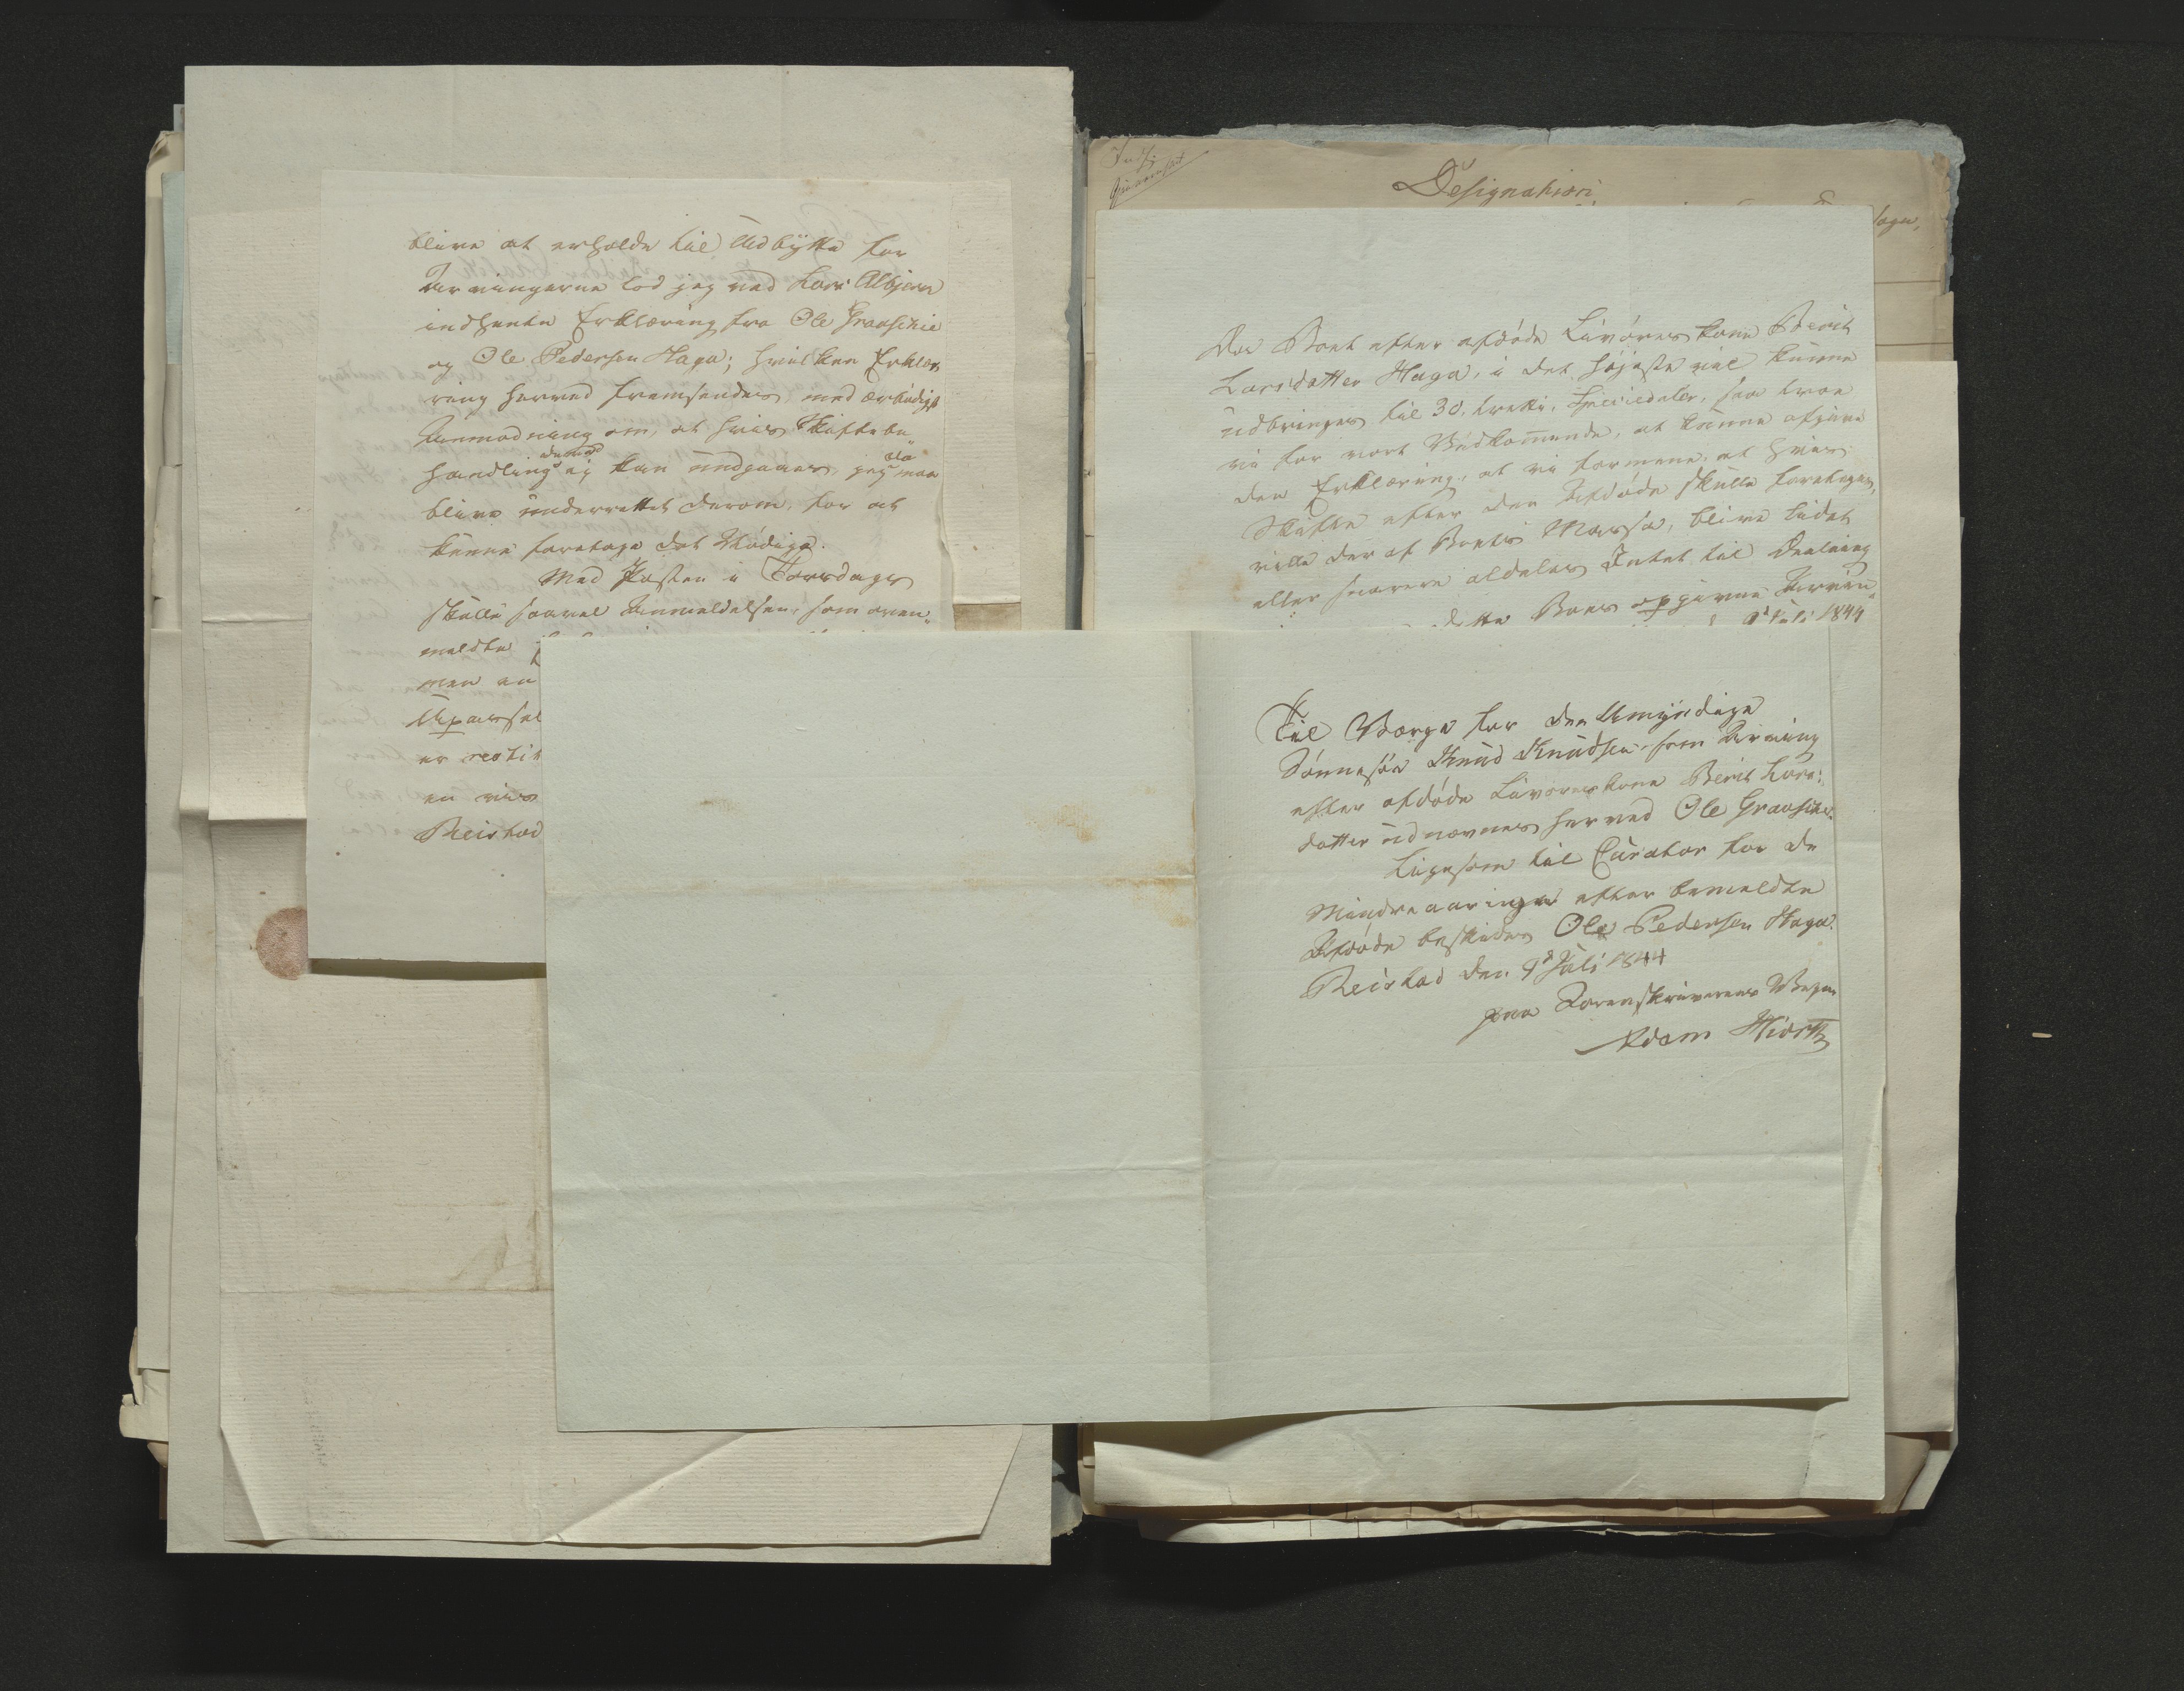 blive at erholde til Udbytte for
Arvingerne lod jeg ved Lars Albjerr
indhente Erklæring fra Ole Graaschie
og Ole Pedersen Haga; hvilken Erklæ,
ring herved fremsendes med ærbødigst
Anmodning om, at hvis Skiftebe„
handling derved ej kan undgaaes, jeg da maa
blive underrettet derom, for at
kunne foretage det Nødige.
Med Posten i Torsdags
skulle saavel Anmeldelsen, som oven„
meldte
men en
Uparsel
er
en vis
Reistad
Designation
Da Boet efter afdøde Livøreskone Berit
Larsdatter Haga, i det højeste vil kunne
udbringes til 30, tretti, Speciedaler, saa troe
vi for vort Vedkommende, at kunne afgive
den Erklæring, at vi formene, at hvis
Skifte efter den Afdøde skulle foretages,
ville der af Boets Massa, blive lidet
eller snarere aldeles Intet til Deeling
dette Boes opgivne Arvin„
9d Juli 1844
Til Værge for den Umyndige
Sønnesøn Knud Knudsen som Arving
efter afdøde Livøreskone Berit Lars„
datter udnævnes herved Ole Graaschie.
Ligesom til Curator for de
Mindreaarige efter bemeldte
Afdøde beskikkes Ole Pedersen Haga.
Reistad den 9d Juli 1844
paa Sorenskriverens Vegne
Adam Hiorth